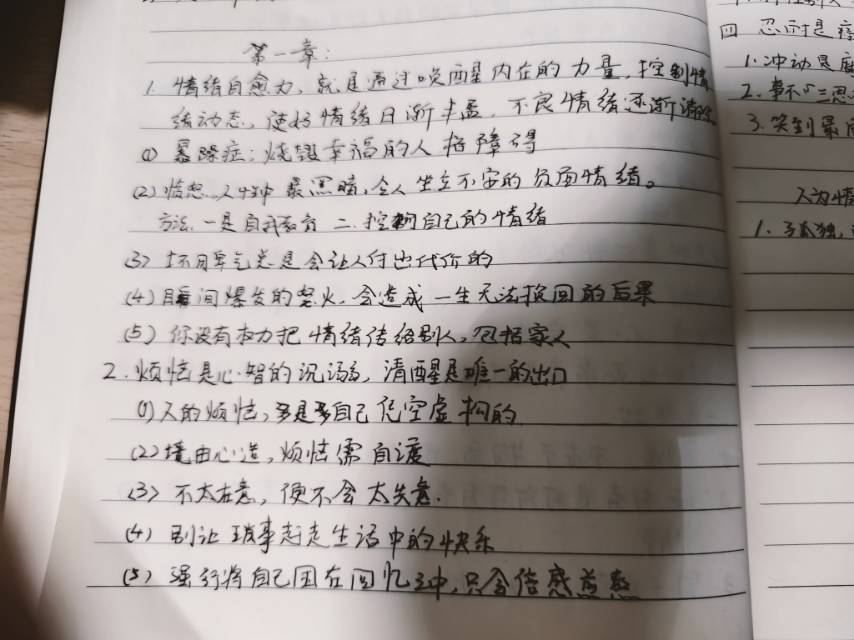 第一章:
1. 情绪自愈力，就是通过唤醒内在的力量，控制情
绪动态，使好情绪日渐丰盈，不良情绪逐渐消除
(1) 暴躁症：烧毁幸福的人格障碍
(2) 愤怒 人性中最黑暗，令人坐立不安的负面情绪。
方法. 一是自我教育 二. 控制自己的情绪
(3) 坏脾气总是会让人付出代价的
(4) 瞬间爆发的怒火，会造成一生无法挽回的后果
(5) 你没有权力把情绪传给别人，包括家人
2. 烦恼是心智的沉溺，清醒是唯一的出口
(1) 人的烦恼，多是自己凭空虚构的
(2) 境由心造，烦恼需自渡
(3) 不太在意，便不会太失意.
(4) 别让琐事赶走生活中的快乐
(5) 强行将自己困在回忆之中，只会倍感煎熬
四 忍耐是
1. 冲动是
2. 事不三思
3. 笑到最
人为情
1.